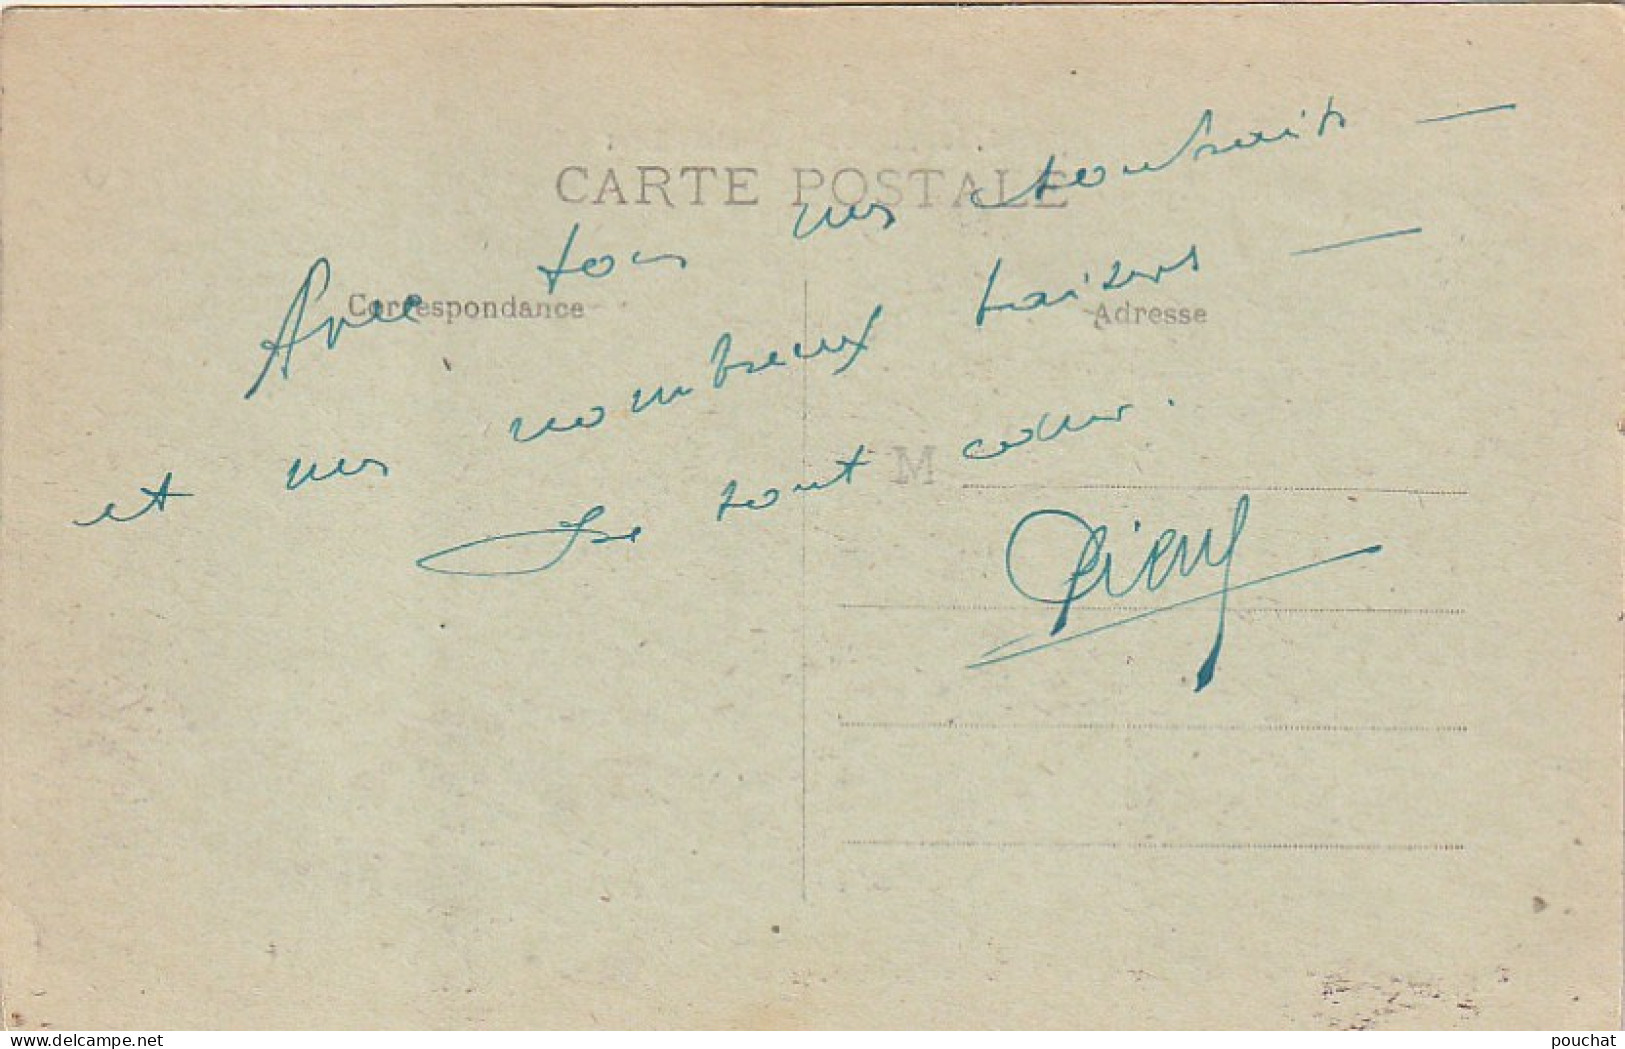 CARTE POSTALE
Correspondance
Adresse
Avec tous nos souhaits —
et nos nombreux baisers —
De tout cœur.
M
www.delcampe.net
pouchat